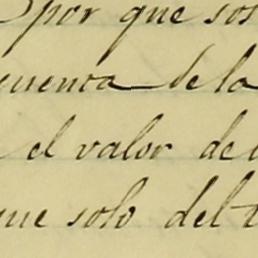 por que sos
cuenca de la
el valor de
que solo del t